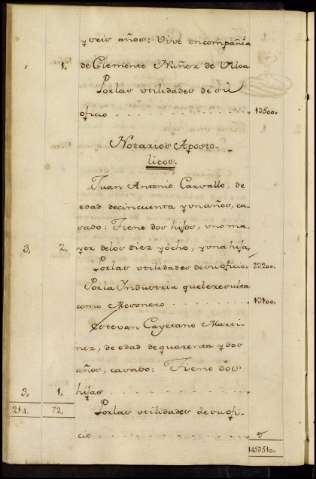 y seis años: Vive en compañia
1, 1, de Clemente Nuñez de Ulloa
Por las utilidades de su
oficio 1500..
Notarios Aposto-
licos.
Juan Antonio Carvallo, de
edad de cincuenta y un años, ca-
sado: Tiene dos hijos, uno ma-
3, 2, yor de los diez y ocho, y una hija,
Por las utilidades de su oficio. 2200..
Por la Industria que le resulta
como
Estevan Cayetano Marti-
nez, de edad de quarenta y dos
años, casado: Tiene dos
3, 1, hijas
72, Por las utilidades de su ofi-
cio